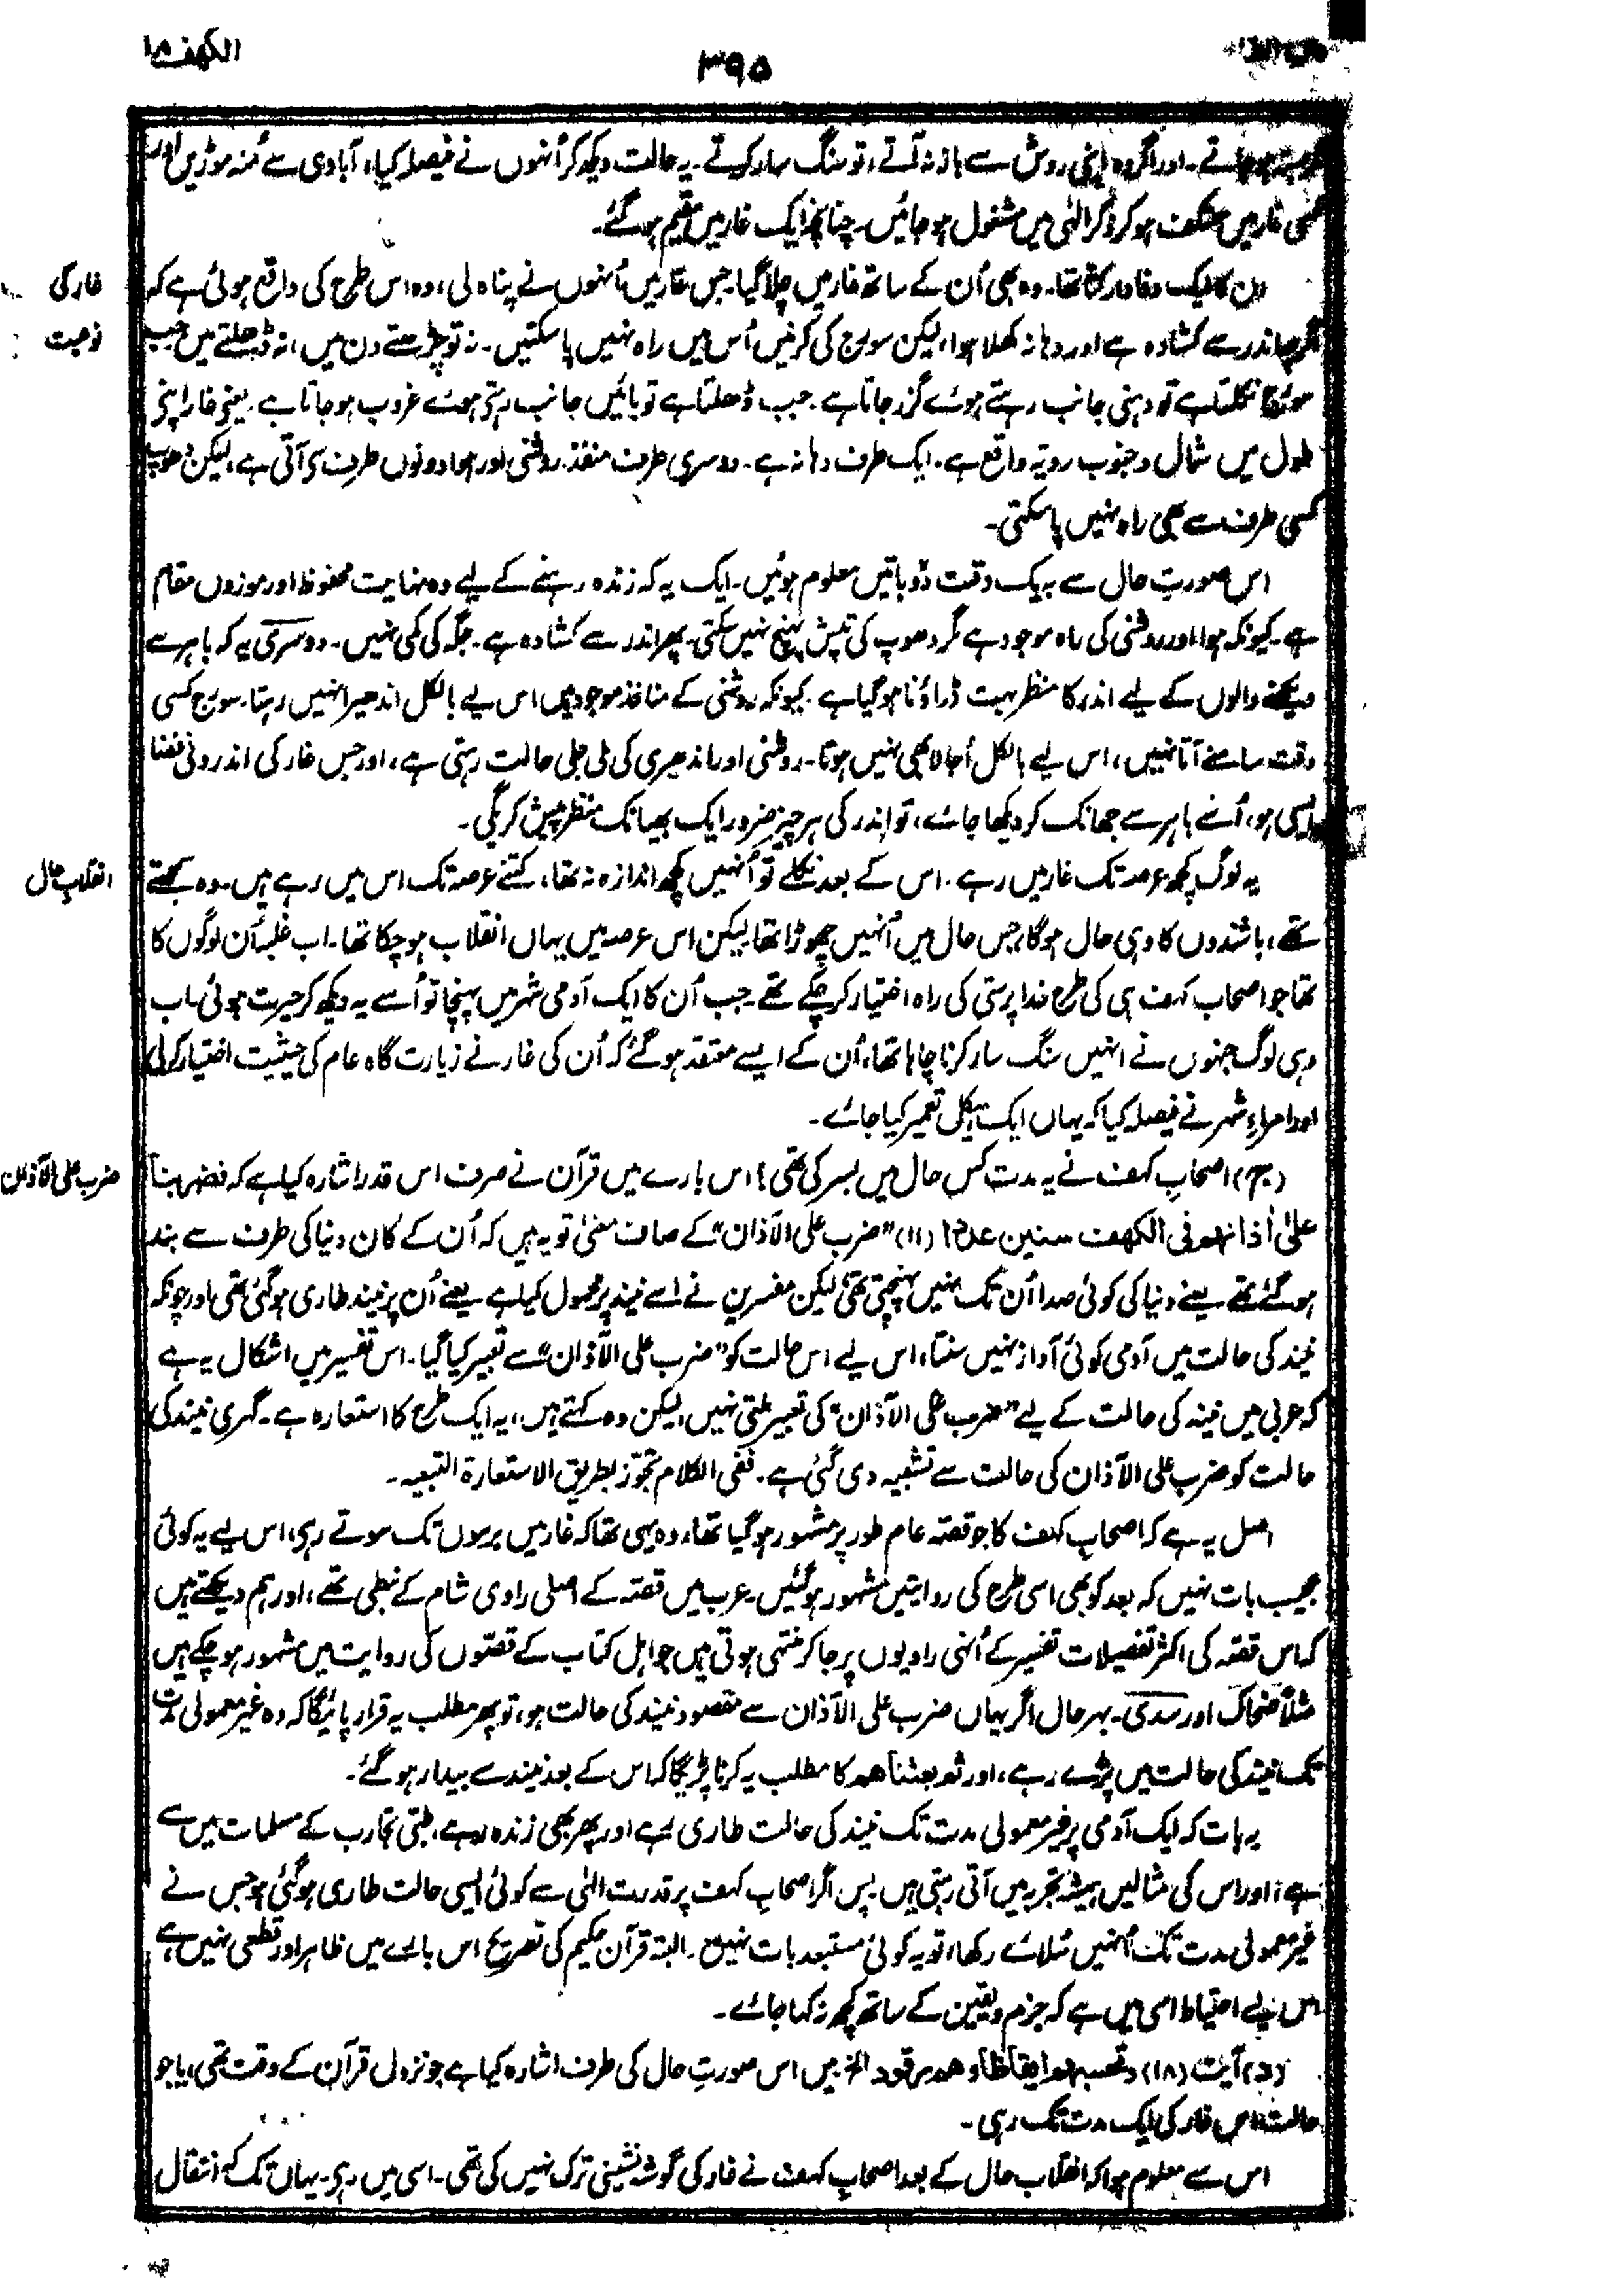 الکہف ۱۸
۳۹۵
ہو جاتے۔ اور اگر وہ اپنی روش سے باز نہ آتے، تو سنگ سار کرتے۔ یہ حالت دیکھ کر اُنہوں نے فیصلہ کیا، آبادی سے مُنہ موڑیں اور
کسی غار میں معتکف ہو کر ذکر الٰہی میں مشغول ہو جائیں۔ چنانچہ ایک غار میں مقیم ہو گئے۔
ان کا ایک وفادار کتا تھا۔ وہ بھی اُن کے ساتھ غار میں چلا گیا۔ جس غار میں اُنہوں نے پناہ لی، وہ اس طرح کی واقع ہوئی ہے کہ
غار کی
اگرچہ اندر سے کشادہ ہے اور دہانہ کھلا ہوا، لیکن سورج کی کرنیں اُس میں راہ نہیں پا سکتیں۔ نہ تو چڑھتے دن میں، نہ ڈھلتے میں۔ جب
نوعیت
سورج نکلتا ہے تو دہنی جانب رہتے ہوئے گزر جاتا ہے۔ جب ڈھلتا ہے تو بائیں جانب رہتے ہوئے غروب ہو جاتا ہے۔ یعنی غار اپنی
طول میں شمال و جنوب رویہ واقع ہے۔ ایک طرف دہانہ ہے۔ دوسری طرف منفذ۔ روشنی اور ہوا دونوں طرف سے آتی ہے، لیکن دھوپ
کسی طرف سے بھی راہ نہیں پا سکتی۔
اس صورتِ حال سے بہ یک وقت دُو باتیں معلوم ہوئیں۔ ایک یہ کہ زندہ رہنے کے لیے وہ نہایت محفوظ اور موزوں مقام
ہے۔ کیونکہ ہوا اور روشنی کی راہ موجود ہے مگر دھوپ کی تپش پہنچ نہیں سکتی۔ پھر اندر سے کشادہ ہے۔ جگہ کی کمی نہیں۔ دوسری یہ کہ باہر سے
دیکھنے والوں کے لیے اندر کا منظر بہت ڈراؤنا ہو گیا ہے۔ کیونکہ روشنی کے منافذ موجود ہیں اس لیے بالکل اندھیرا نہیں رہتا۔ سورج کسی
وقت سامنے آتا نہیں، اس لیے بالکل اُجالا بھی نہیں ہوتا۔ روشنی اور اندھیری کی ملی جلی حالت رہتی ہے، اور جس غار کی اندرونی فضا
ایسی ہو، اُسے باہر سے جھانک کر دیکھا جائے، تو اندر کی ہر چیز ضرور ایک بھیانک منظر پیش کریگی۔
یہ لوگ کچھ عرصہ تک غار میں رہے۔ اس کے بعد نکلے تو اُنہیں کچھ اندازہ نہ تھا، کتنے عرصہ تک اس میں رہے ہیں۔ وہ سمجھتے
انقلابِ حال
تھے، باشندوں کا وہی حال ہوگا، جس حال میں اُنہیں چھوڑا تھا، لیکن اس عرصہ میں یہاں انقلاب ہو چکا تھا۔ اب غلبہ اُن لوگوں کا
تھا جو اصحاب کہف ہی کی طرح خدا پرستی کی راہ اختیار کر چکے تھے۔ جب اُن کا ایک آدمی شہر میں پہنچا تو اُسے یہ دیکھ کر حیرت ہوئی، اب
وہی لوگ جنہوں نے انہیں سنگ سار کرنا چاہا تھا، اُن کے ایسے معتقد ہو گئے کہ اُن کی غار نے زیارت گاہ عام کی حیثیت اختیار کر لی
اور امراءِ شہر نے فیصلہ کیا کہ یہاں ایک ہیکل تعمیر کیا جائے۔
(ج) اصحابِ کہف نے یہ مدت کس حال میں بسر کی تھی؟ اس بارے میں قرآن نے صرف اس قدر اشارہ کیا ہے کہ فضربنا
ضرب علی الآذان
علیٰ اٰذانہم فی الکھف سنین عددا (۱۱) "ضرب علی الآذان" کے صاف معنیٰ تو یہ ہیں کہ اُن کے کان دنیا کی طرف سے بند
ہو گئے تھے یعنے دنیا کی کوئی صدا اُن تک نہیں پہنچتی تھی، لیکن مفسرین نے اسے نیند پر محمول کیا ہے یعنے اُن پر نیند طاری ہو گئی تھی، اور چونکہ
نیند کی حالت میں آدمی کوئی آواز نہیں سنتا، اس لیے اس حالت کو "ضرب علی الآذان" سے تعبیر کیا گیا۔ اس تفسیر میں اشکال یہ ہے
کہ عربی میں نیند کی حالت کے لیے "ضرب علی الآذان" کی تعبیر ملتی نہیں، لیکن وہ کہتے ہیں، یہ ایک طرح کا استعارہ ہے۔ گہری نیند کی
حالت کو ضرب علی الآذان کی حالت سے تشبیہ دی گئی ہے۔ ففی الکلام تجوّز بطریق الاستعارۃ التبعیہ۔
اصل یہ ہے کہ اصحابِ کہف کا جو قصّہ عام طور پر مشہور ہو گیا تھا، وہ یہی تھا کہ غار میں برسوں تک سوتے رہی، اس لیے یہ کوئی
عجیب بات نہیں کہ بعد کو بھی اسی طرح کی روایتیں مشہور ہو گئیں۔ عرب میں قصّہ کے اصلی راوی شام کے نبطی تھے، اور ہم دیکھتے ہیں
کہ اس قصّہ کی اکثر تفصیلات تفسیر کے اُنہی راویوں پر جا کر منتہی ہوتی ہیں جو اہل کتاب کے قصّوں کی روایت میں مشہور ہو چکے ہیں
مثلاً ضحاک اور سدی۔ بہر حال اگر یہاں ضرب علی الآذان سے مقصود نیند کی حالت ہو، تو پھر مطلب یہ قرار پائیگا کہ وہ غیر معمولی مدت
تک نیند کی حالت میں پڑے رہے، اور ثم بعثناھم کا مطلب یہ کرنا پڑیگا کہ اس کے بعد نیند سے بیدار ہو گئے۔
یہ بات کہ ایک آدمی پر غیر معمولی مدت تک نیند کی حالت طاری رہے اور پھر بھی زندہ رہے، طبّی تجارب کے مسلمات میں سے
ہے، اور اس کی مثالیں ہمیشہ تجربہ میں آتی رہتی ہیں۔ پس اگر اصحابِ کہف پر قدرت الٰہی سے کوئی ایسی حالت طاری ہو گئی ہو جس نے
غیر معمولی مدت تک اُنہیں سُلائے رکھا، تو یہ کوئی مستبعد بات نہیں۔ البتہ قرآن حکیم کی تصریح اس بارے میں ظاہر اور قطعی نہیں ہے
اس لیے احتیاط اسی میں ہے کہ جزم و یقین کے ساتھ کچھ نہ کہا جائے۔
(د) آیت (۱۸) وتحسبہم ایقاظا وھم رقود الخ میں اس صورتِ حال کی طرف اشارہ کیا ہے جو نزول قرآن کے وقت تھی، یا جو
حالت اس غار کی ایک مدت تک رہی۔
اس سے معلوم ہوا کہ انقلابِ حال کے بعد اصحابِ کہف نے غار کی گوشہ نشینی ترک نہیں کی تھی۔ اسی میں رہی۔ یہاں تک کہ انتقال